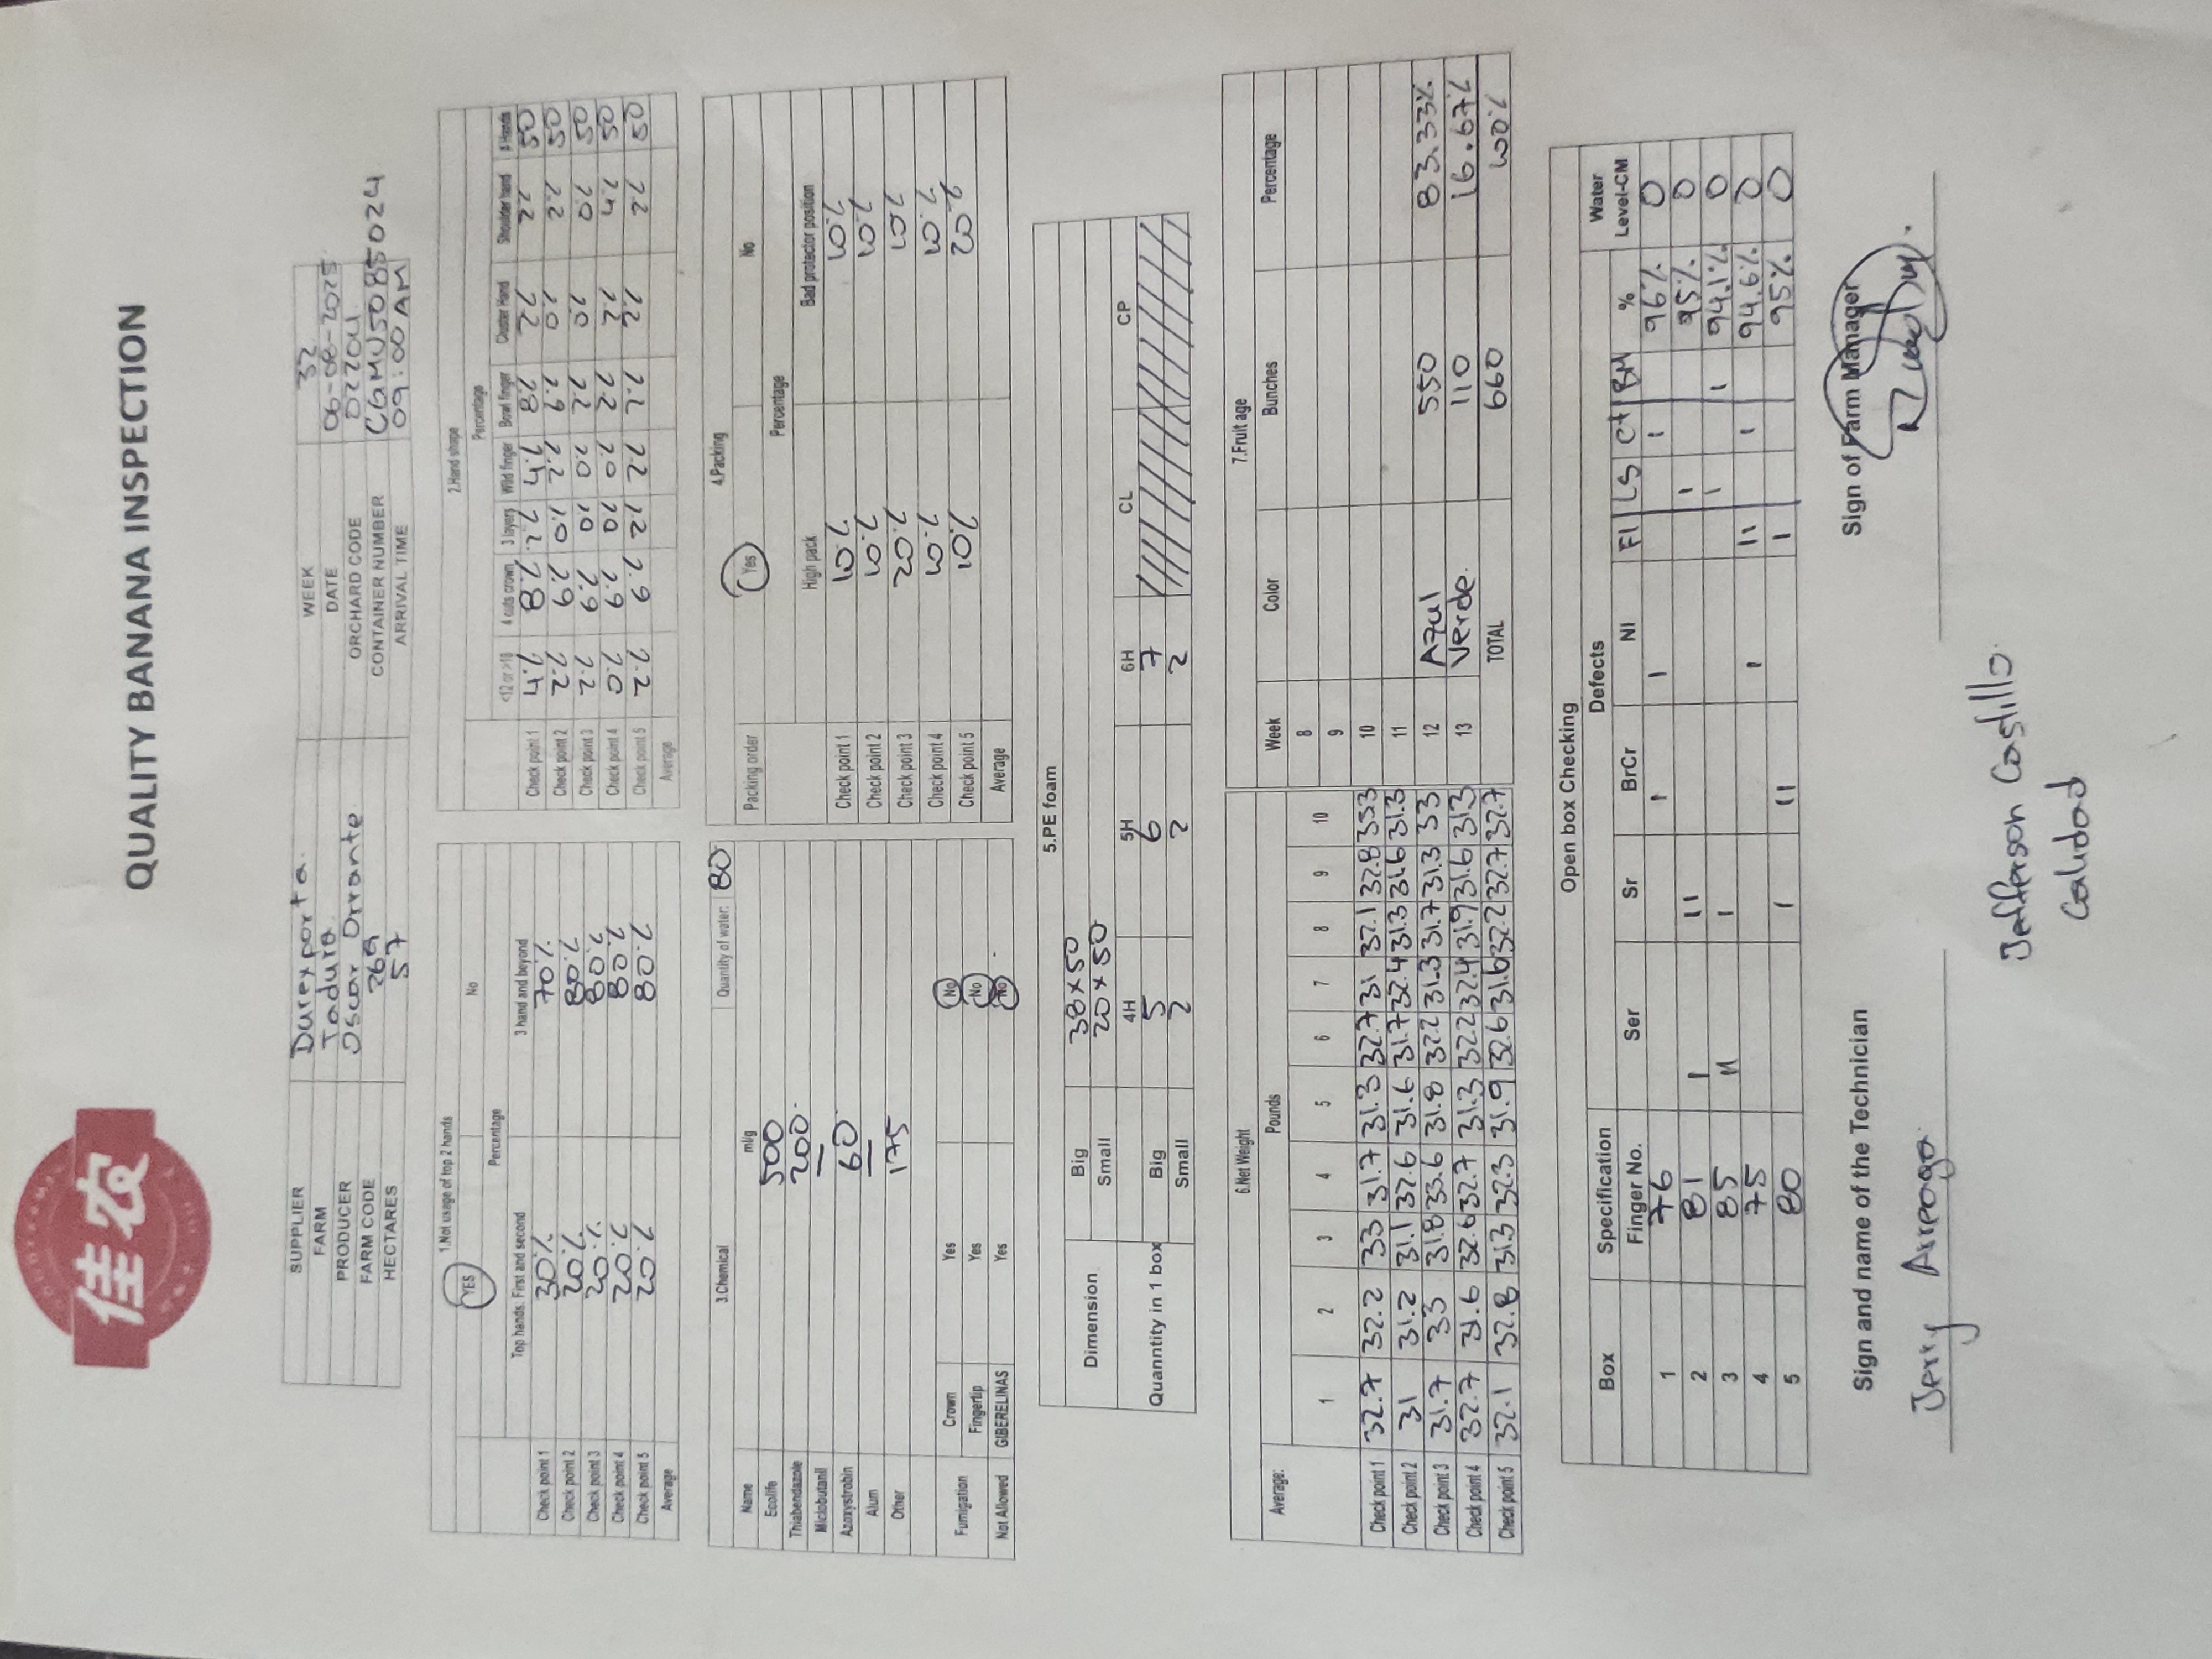 佳农
QUALITY BANANA INSPECTION
SUPPLIER Durexporta. WEEK 32
FARM Jadura DATE 06-08-2025
PRODUCER Oscar Orrante. ORCHARD CODE 02204
FARM CODE 269 CONTAINER NUMBER CGMU5085024
HECTARES 57 ARRIVAL TIME 09:00 AM
1.Not usage of top 2 hands
YES No
Percentage
Top hands: First and second 3 hand and beyond
Check point 1 30% 70%
Check point 2 20% 80%
Check point 3 20% 80%
Check point 4 20% 80%
Check point 5 20% 80%
Average
2.Hand shape
Percentage
<12 or >18 4 cuts crown 3 layers Wild finger Bowl finger Cluster Hand Shoulder hand # Hands
Check point 1 4% 8% 2% 4% 8% 2% 2% 50
Check point 2 2% 6% 0% 2% 6% 0% 2% 50
Check point 3 2% 6% 0% 0% 2% 0% 0% 50
Check point 4 0% 6% 0% 0% 2% 2% 4% 50
Check point 5 2% 6% 2% 2% 2% 2% 2% 50
Average
3.Chemical Quantity of water: 80
Name ml/g
Ecolife 500
Thiabendazole 200
Miclobutanil —
Azoxystrobin 60
Alum —
Other 175
Fumigation Crown Yes No
Fingertip Yes No
Not Allowed GIBERELINAS Yes No
4.Packing
Packing order Yes No
Percentage
High pack Bad protector position
Check point 1 10% 10%
Check point 2 10% 10%
Check point 3 20% 10%
Check point 4 10% 10%
Check point 5 10% 20%
Average
5.PE foam
Dimension Big 38x50
Small 20x50
4H 5H 6H CL CP
Quanntity in 1 box Big 5 6 7
Small 2 2 2
6.Net Weight
Average: Pounds
1 2 3 4 5 6 7 8 9 10
Check point 1 32.7 32.2 33 31.7 31.3 32.7 31 32.1 32.8 333
Check point 2 31 31.2 31.1 32.6 31.6 31.7 32.4 31.3 31.6 31.3
Check point 3 31.7 33 31.8 33.6 31.8 32.2 31.3 31.7 31.3 33
Check point 4 32.7 31.6 32.6 32.7 31.3 32.2 32.4 31.9 31.6 31.3
Check point 5 32.1 32.8 31.3 32.3 31.9 32.6 31.6 32.2 32.7 32.7
7.Fruit age
Week Color Bunches Percentage
8
9
10
11
12 Azul 550 83.33%
13 Verde. 110 16.67%
TOTAL 660 100%
Open box Checking
Box Specification Defects Water
Finger No. Ser Sr BrCr NI FI LS Ct BM % Level-CM
1 76 I I I 96% 0
2 81 I II I 95% 0
3 85 II I I I 94.1% 0
4 75 I II I 94.6% 0
5 80 I II I 95% 0
Sign and name of the Technician Sign of Farm Manager
Jerry Arreaga
Jefferson Castillo
Calidad